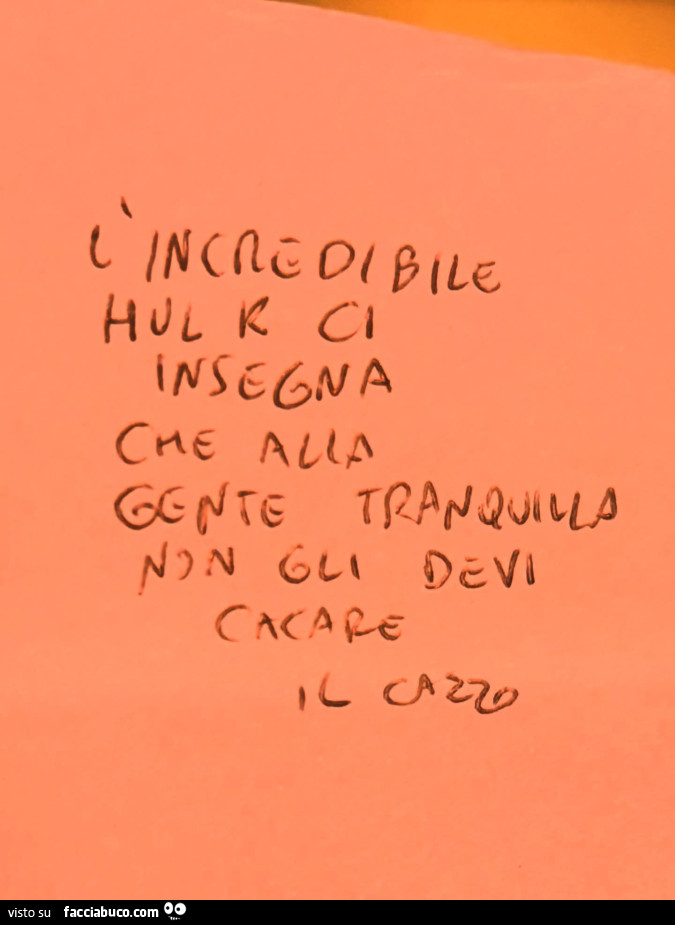 L'INCREDIBILE
HULK CI
INSEGNA
CHE ALLA
GENTE TRANQUILLA
NON GLI DEVI
CACARE
IL CAZZO
visto su facciabuco.com